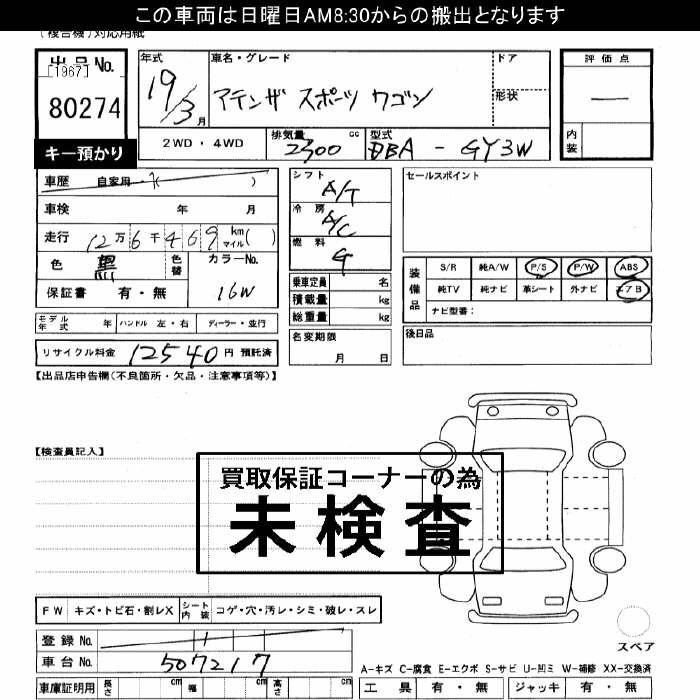 この車両は日曜日AM8:30からの搬出となります
(複合機)対応用紙
出品No.
[1967]
80274
キー預かり
年式
19/3月
車名・グレード
アテンザ スポーツ ワゴン
ドア
形状
評価点
―
内装
2WD・4WD
排気量
2300 cc
型式
DBA - GY3W
車歴 自家用・( )
車検 年 月
走行 12万6千469 km マイル( )
色 黒
色替
カラーNo.
16W
保証書 有・無
モデル年式 年 ハンドル 左・右 ディーラー・並行
リサイクル料金 12540円 預託済
シフト
A/T
冷房
A/C
燃料
G
乗車定員 名
積載量 kg
総重量 kg
名変期限
月 日
セールスポイント
装備品
S/R 純A/W P/S P/W ABS
純TV 純ナビ 革シート 外ナビ エアB
ナビ型番:
後日品
【出品店申告欄(不良箇所・欠品・注意事項等)】
【検査員記入】
買取保証コーナーの為
未検査
FW キズ・トビ石・割レX
シート内装 コゲ・穴・汚レ・シミ・破レ・スレ
登録No.
車台No. 507217
車庫証明用 長さ cm 幅 cm 高さ cm
スペア
A-キズ C-腐食 E-エクボ S-サビ U-凹ミ W-補修 XX-交換済
工具 有・無 ジャッキ 有・無